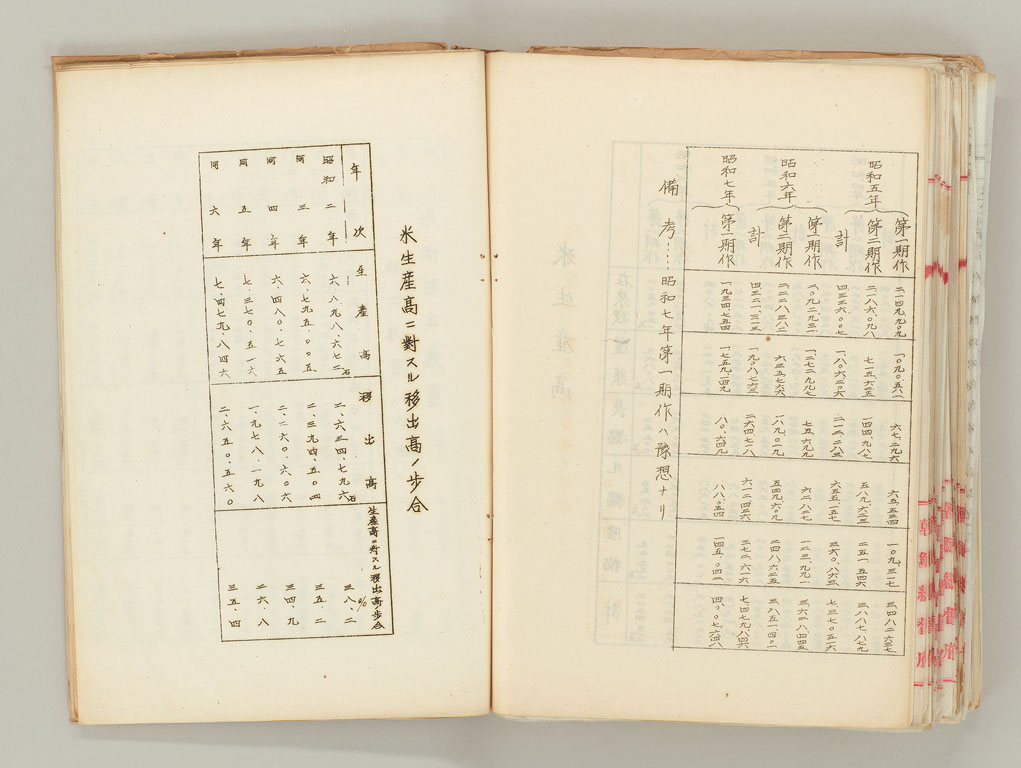 昭和五年 第一期作 二一四九九〇九 一〇九〇五八一 六七、二九六 六五、五三四 一〇九、三一七 三四八二六三七
第二期作 二一八六、〇九八 七一五六二五 一四四、九八七 五八九、六二三 二五一、五四六 三八八七八七九
計 四三三六〇〇七 一八〇六二〇六 二一二、二八三 六五五、一五七 三六〇、八六三 七三七〇五一六
昭和六年 第一期作 二〇九二九三一 一二七二九九七 七五六九九 六二、八二七 一二三、九九一 三六二八四四五
第二期作 二二二八三八二 六三五七六六 一八九、〇一九 五四九六〇九 二四八六二五 三八五一四〇一
計 四三二一三一三 一九〇八七六三 二六四七一八 六一二四三六 三七二、六一六 七、四七九八四六
昭和七年 第一期作 一九三四七五四 一七五九、一四九 八〇、六四九 八八、〇五四 一四五、〇四二 四〇〇七六四八
備考……昭和七年第一期作ハ豫想ナリ
米生産高ニ對スル移出高ノ歩合
年次 生産高 移出高 生産高ニ對スル移出高歩合
昭和二年 六、八九八、六七二石 二、六三四、七九六石 三八、二%
同三年 六、七九五、〇〇五 二、三九四、五〇四 三五、二
同四年 六、四八〇、七六五 二、二六〇、六〇六 三四、九
同五年 七、三七〇、五一六 一、九七八、一九八 二六、八
同六年 七、四七九、八四六 二、六五〇、五六〇 三五、四